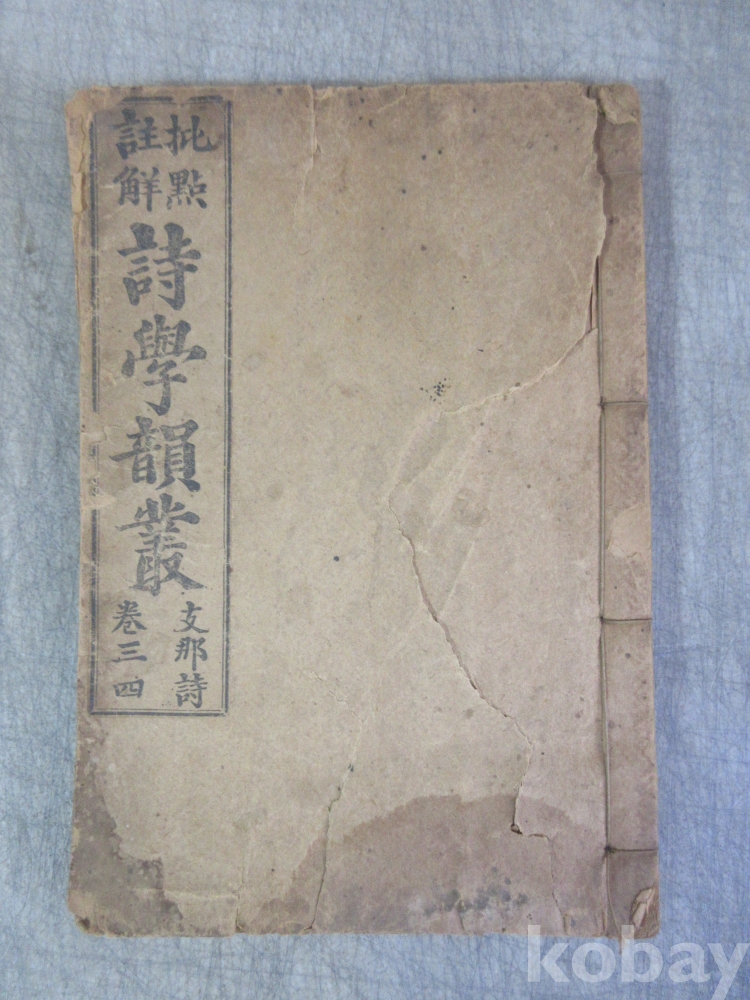 批點
註解
詩學韻叢
支那詩
卷三四
kobay